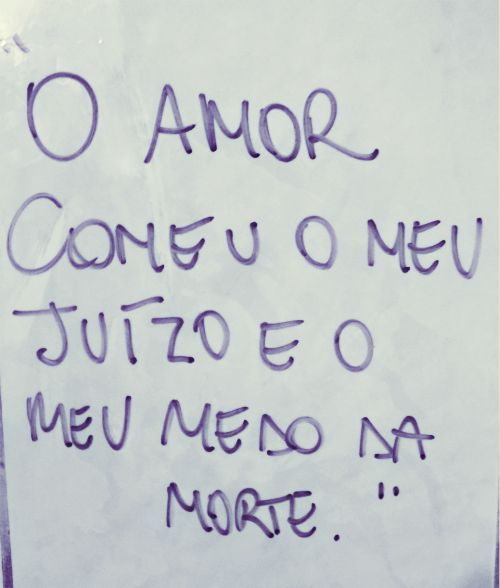 "O AMOR
COMEU O MEU
JUÍZO E O
MEU MEDO DA
MORTE."